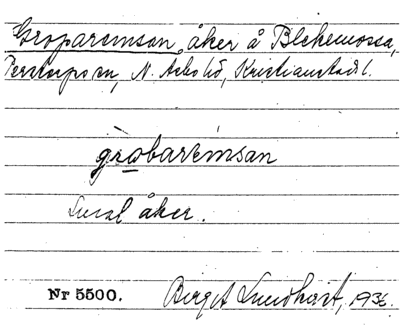 Groparemsan, åker å Blekemossa,
Perstorps sn, N. Åsbo hd, Kristianstads l.
grωbarèmsan
Smal åker.
Nr 5500. Birgit Lundkvist, 1936.